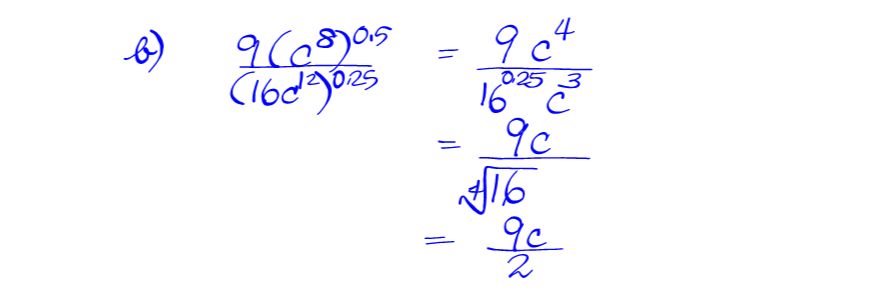 b) 9(c^8)^0.5 / (16c^12)^0.25 = 9c^4 / 16^0.25 c^3
= 9c / ∜16
= 9c / 2